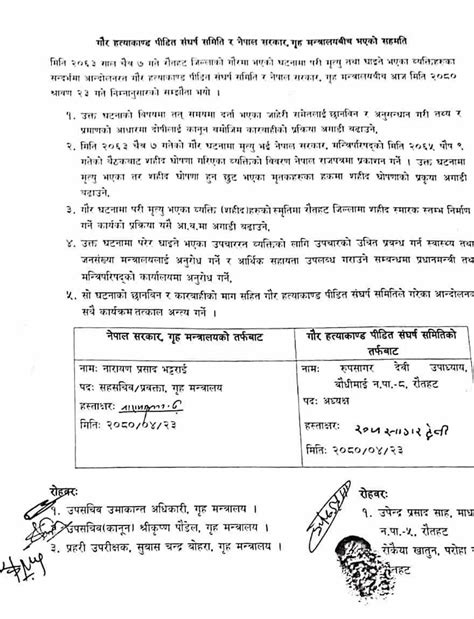 गौर हत्याकाण्ड पीडित संघर्ष समिति र नेपाल सरकार, गृह मन्त्रालयबीच भएको सहमति
मिति २०६३ साल चैत्र ७ गते रौतहट जिल्लाको गौरमा भएको घटनामा परी मृत्यु तथा घाइते भएका व्यक्तिहरुका
सन्दर्भमा आन्दोलनरत गौर हत्याकाण्ड पीडित संघर्ष समिति र नेपाल सरकार, गृह मन्त्रालयबीच आज मिति २०८०
श्रावण २३ गते निम्नानुसारको सम्झौता भयो ।
१. उक्त घटनाको विषयमा तत् समयमा दर्ता भएका जाहेरी समेतलाई छानविन र अनुसन्धान गरी तथ्य र
प्रमाणको आधारमा दोषीलाई कानून बमोजिम कारवाहीको प्रक्रिया अगाडी बढाउने.
२. मिति २०६३ चैत्र ७ गतेको गौर घटनामा मृत्यु भई नेपाल सरकार, मन्त्रिपरिषद्को मिति २०६५ पौष ९
गतेको बैठकबाट शहीद घोषणा गरिएका व्यक्तिको विवरण नेपाल राजपत्रमा प्रकाशन गर्ने । उक्त घटनामा
मृत्यु भएका तर शहीद घोषणा हुन छुट भएका मृतकहरुका हकमा शहीद घोषणाको प्रकृया अगाडी
बढाउने.
३. गौर घटनामा परी मृत्यु भएका व्यक्ति (शहीद)हरुको स्मृतिमा रौतहट जिल्लामा शहीद स्मारक स्तम्भ निर्माण
गर्ने कार्यको प्रक्रिया यसै आ.व.मा अगाडी बढाउने.
४. उक्त घटनामा परेर घाइते भएका उपचाररत व्यक्तिको लागि उपचारको उचित प्रवन्ध गर्न स्वास्थ्य तथा
जनसंख्या मन्त्रालयलाई अनुरोध गर्ने र आर्थिक सहायता उपलब्ध गराउने सम्बन्धमा प्रधानमन्त्री तथा
मन्त्रिपरिषद्को कार्यालयमा अनुरोध गर्ने.
५. सो घटनाको छानविन र कारबाहीको माग सहित गौर हत्याकाण्ड पीडित संघर्ष समितिले गरेका आन्दोलनका
सवै कार्यक्रम तत्काल अन्त्य गर्ने ।
नेपाल सरकार, गृह मन्त्रालयको तर्फबाट
नामः नारायण प्रसाद भट्टराई
पदः सहसचिव/प्रवक्ता, गृह मन्त्रालय
हस्ताक्षरः
मितिः २०८०/०४/२३
गौर हत्याकाण्ड पीडित संघर्ष समितिको
तर्फबाट
नामः रुपसागर देवी उपाध्याय,
बौधीमाई न.पा.-८, रौतहट
पदः अध्यक्ष
हस्ताक्षरः
मितिः २०८०/०४/२३
रोहवरः
१. उपसचिव उमाकान्त अधिकारी, गृह मन्त्रालय ।
उपसचिव(कानून) श्रीकृष्ण पौडेल, गृह मन्त्रालय ।
३. प्रहरी उपरीक्षक, सुवास चन्द्र बोहरा, गृह मन्त्रालय ।
रोहवरः
१. उपेन्द्र प्रसाद साह, माध
न.पा.-५, रौतहट
रोकैया खातुन, परोहा